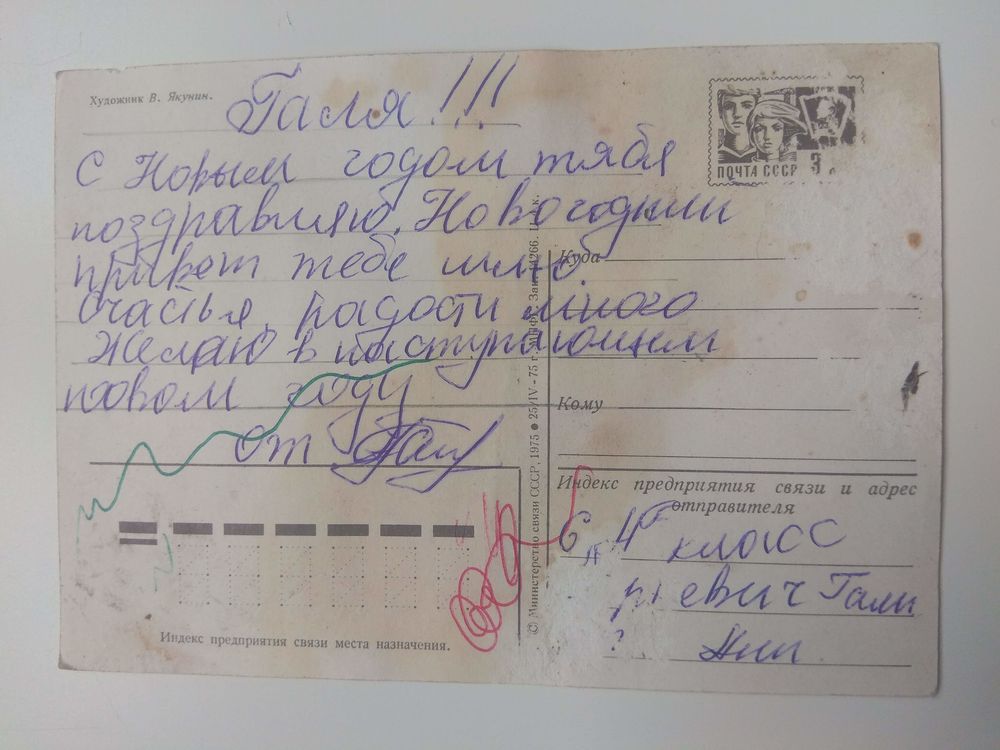 Художник В. Якунин.
Галя!!!
С Новым годом тябя
поздравляю. Новогодний
привет тебе шлю
счастья, радости много
Желаю в наступающем
новом году
от
ПОЧТА СССР 3
Куда
Кому
Индекс предприятия связи и адрес
отправителя
4 класс
евич Гали
Индекс предприятия связи места назначения.
© Министерство связи СССР, 1975 ● 25/IV - 75 г. Зак. 4266.